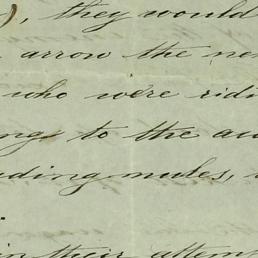 ), they would
arrow the ne
who were ridi
ng to the au
ding mules,
in their attemp